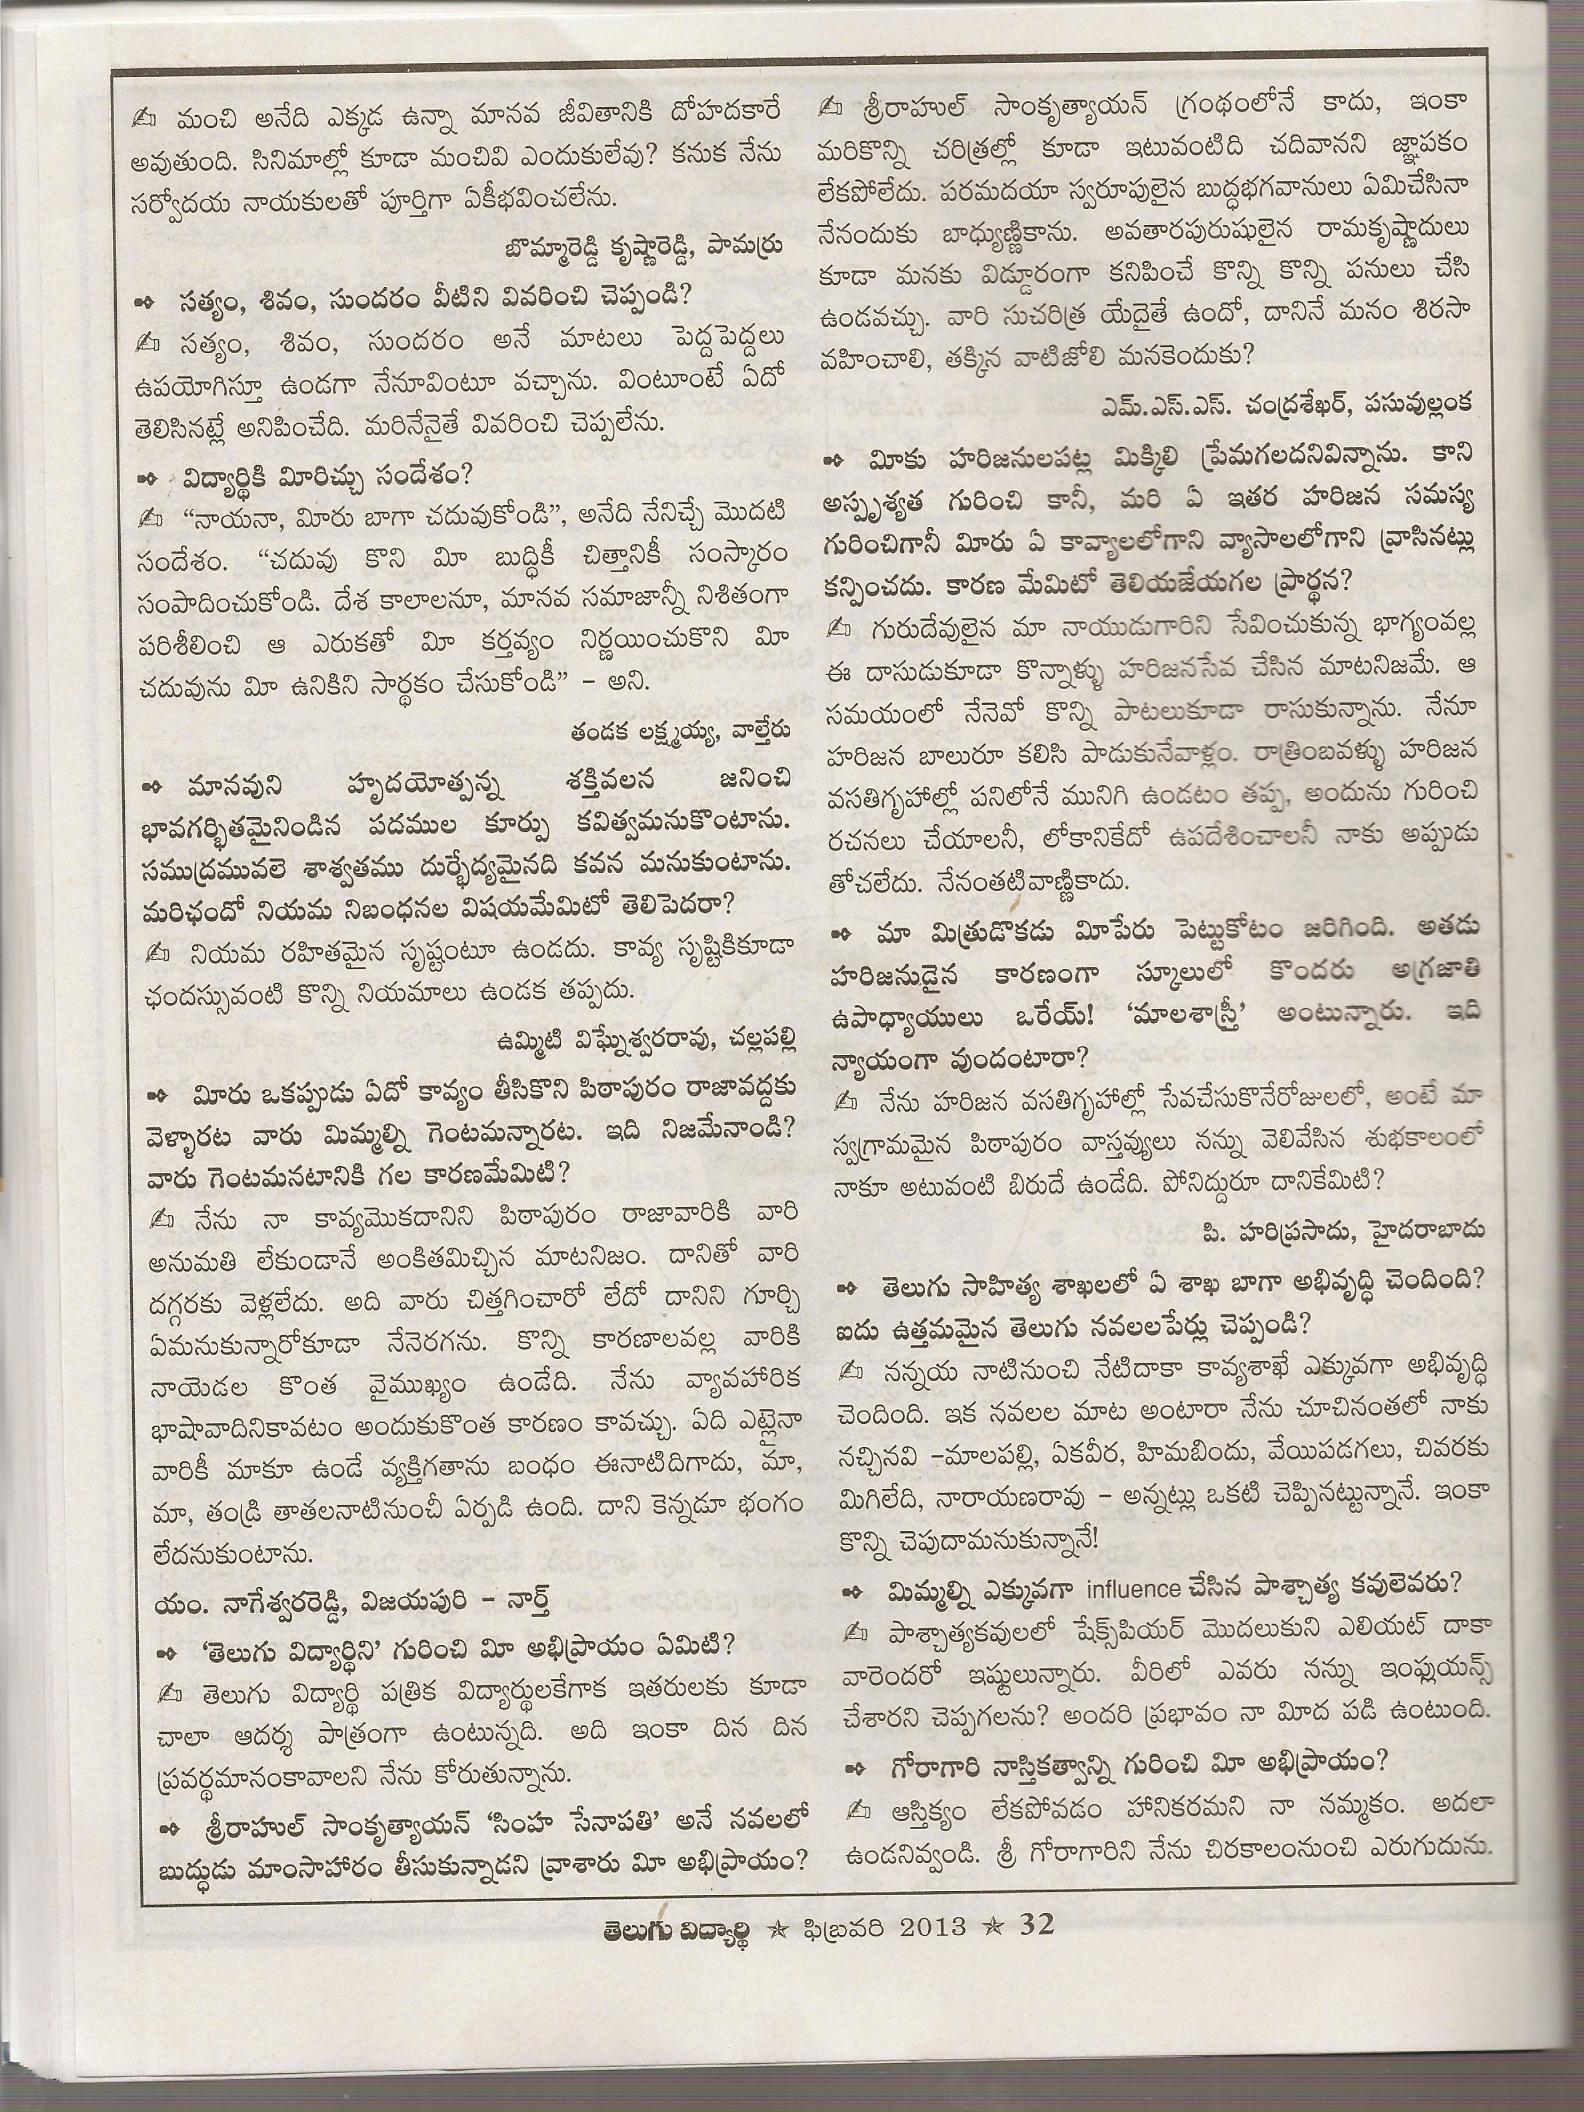 ✍ మంచి అనేది ఎక్కడ ఉన్నా మానవ జీవితానికి దోహదకారే
అవుతుంది. సినిమాల్లో కూడా మంచివి ఎందుకులేవు? కనుక నేను
సర్వోదయ నాయకులతో పూర్తిగా ఏకీభవించలేను.
బొమ్మారెడ్డి కృష్ణారెడ్డి, పామర్రు
➺ సత్యం, శివం, సుందరం వీటిని వివరించి చెప్పండి?
✍ సత్యం, శివం, సుందరం అనే మాటలు పెద్దపెద్దలు
ఉపయోగిస్తూ ఉండగా నేనూవింటూ వచ్చాను. వింటూంటే ఏదో
తెలిసినట్లే అనిపించేది. మరినేనైతే వివరించి చెప్పలేను.
➺ విద్యార్థికి మీరిచ్చు సందేశం?
✍ “నాయనా, మీరు బాగా చదువుకోండి”, అనేది నేనిచ్చే మొదటి
సందేశం. “చదువు కొని మీ బుద్ధికీ చిత్తానికీ సంస్కారం
సంపాదించుకోండి. దేశ కాలాలనూ, మానవ సమాజాన్నీ నిశితంగా
పరిశీలించి ఆ ఎరుకతో మీ కర్తవ్యం నిర్ణయించుకొని మీ
చదువును మీ ఉనికిని సార్థకం చేసుకోండి” – అని.
తండక లక్ష్మయ్య, వాల్తేరు
➺ మానవుని హృదయోత్పన్న శక్తివలన జనించి
భావగర్భితమైనిండిన పదముల కూర్పు కవిత్వమనుకొంటాను.
సముద్రమువలె శాశ్వతము దుర్భేద్యమైనది కవన మనుకుంటాను.
మరిఛందో నియమ నిబంధనల విషయమేమిటో తెలిపెదరా?
✍ నియమ రహితమైన సృష్టంటూ ఉండదు. కావ్య సృష్టికికూడా
ఛందస్సువంటి కొన్ని నియమాలు ఉండక తప్పదు.
ఉమ్మిటి విఘ్నేశ్వరరావు, చల్లపల్లి
➺ మీరు ఒకప్పుడు ఏదో కావ్యం తీసికొని పిఠాపురం రాజావద్దకు
వెళ్ళారట వారు మిమ్మల్ని గెంటమన్నారట. ఇది నిజమేనాండి?
వారు గెంటమనటానికి గల కారణమేమిటి?
✍ నేను నా కావ్యమొకదానిని పిఠాపురం రాజావారికి వారి
అనుమతి లేకుండానే అంకితమిచ్చిన మాటనిజం. దానితో వారి
దగ్గరకు వెళ్లలేదు. అది వారు చిత్తగించారో లేదో దానిని గూర్చి
ఏమనుకున్నారోకూడా నేనెరగను. కొన్ని కారణాలవల్ల వారికి
నాయెడల కొంత వైముఖ్యం ఉండేది. నేను వ్యావహారిక
భాషావాదినికావటం అందుకుకొంత కారణం కావచ్చు. ఏది ఎట్లైనా
వారికీ మాకూ ఉండే వ్యక్తిగతాను బంధం ఈనాటిదిగాదు, మా,
మా, తండ్రి తాతలనాటినుంచీ ఏర్పడి ఉంది. దాని కెన్నడూ భంగం
లేదనుకుంటాను.
యం. నాగేశ్వరరెడ్డి, విజయపురి – నార్త్
➺ ‘తెలుగు విద్యార్థిని’ గురించి మీ అభిప్రాయం ఏమిటి?
✍ తెలుగు విద్యార్థి పత్రిక విద్యార్థులకేగాక ఇతరులకు కూడా
చాలా ఆదర్శ పాత్రంగా ఉంటున్నది. అది ఇంకా దిన దిన
ప్రవర్థమానంకావాలని నేను కోరుతున్నాను.
➺ శ్రీరాహుల్ సాంకృత్యాయన్ ‘సింహ సేనాపతి’ అనే నవలలో
బుద్ధుడు మాంసాహారం తీసుకున్నాడని వ్రాశారు మీ అభిప్రాయం?
✍ శ్రీరాహుల్ సాంకృత్యాయన్ గ్రంథంలోనే కాదు, ఇంకా
మరికొన్ని చరిత్రల్లో కూడా ఇటువంటిది చదివానని జ్ఞాపకం
లేకపోలేదు. పరమదయా స్వరూపులైన బుద్ధభగవానులు ఏమిచేసినా
నేనందుకు బాధ్యుణ్ణికాను. అవతారపురుషులైన రామకృష్ణాదులు
కూడా మనకు విడ్డూరంగా కనిపించే కొన్ని కొన్ని పనులు చేసి
ఉండవచ్చు. వారి సుచరిత్ర యేదైతే ఉందో, దానినే మనం శిరసా
వహించాలి, తక్కిన వాటిజోలి మనకెందుకు?
ఎమ్.ఎస్.ఎస్. చంద్రశేఖర్, పసువుల్లంక
➺ మీకు హరిజనులపట్ల మిక్కిలి ప్రేమగలదనివిన్నాను. కాని
అస్పృశ్యత గురించి కానీ, మరి ఏ ఇతర హరిజన సమస్య
గురించిగానీ మీరు ఏ కావ్యాలలోగాని వ్యాసాలలోగాని వ్రాసినట్లు
కన్పించదు. కారణ మేమిటో తెలియజేయగల ప్రార్థన?
✍ గురుదేవులైన మా నాయుడుగారిని సేవించుకున్న భాగ్యంవల్ల
ఈ దాసుడుకూడా కొన్నాళ్ళు హరిజనసేవ చేసిన మాటనిజమే. ఆ
సమయంలో నేనెవో కొన్ని పాటలుకూడా రాసుకున్నాను. నేనూ
హరిజన బాలురూ కలిసి పాడుకునేవాళ్లం. రాత్రింబవళ్ళు హరిజన
వసతిగృహాల్లో పనిలోనే మునిగి ఉండటం తప్ప, అందును గురించి
రచనలు చేయాలనీ, లోకానికేదో ఉపదేశించాలనీ నాకు అప్పుడు
తోచలేదు. నేనంతటివాణ్ణికాదు.
➺ మా మిత్రుడొకడు మీపేరు పెట్టుకోటం జరిగింది. అతడు
హరిజనుడైన కారణంగా స్కూలులో కొందరు అగ్రజాతి
ఉపాధ్యాయులు ఒరేయ్! ‘మాలశాస్త్రీ’ అంటున్నారు. ఇది
న్యాయంగా వుందంటారా?
✍ నేను హరిజన వసతిగృహాల్లో సేవచేసుకొనేరోజులలో, అంటే మా
స్వగ్రామమైన పిఠాపురం వాస్తవ్యులు నన్ను వెలివేసిన శుభకాలంలో
నాకూ అటువంటి బిరుదే ఉండేది. పోనిద్దురూ దానికేమిటి?
పి. హరిప్రసాదు, హైదరాబాదు
➺ తెలుగు సాహిత్య శాఖలలో ఏ శాఖ బాగా అభివృద్ధి చెందింది?
ఐదు ఉత్తమమైన తెలుగు నవలలపేర్లు చెప్పండి?
✍ నన్నయ నాటినుంచి నేటిదాకా కావ్యశాఖే ఎక్కువగా అభివృద్ధి
చెందింది. ఇక నవలల మాట అంటారా నేను చూచినంతలో నాకు
నచ్చినవి –మాలపల్లి, ఏకవీర, హిమబిందు, వేయిపడగలు, చివరకు
మిగిలేది, నారాయణరావు – అన్నట్లు ఒకటి చెప్పినట్టున్నానే. ఇంకా
కొన్ని చెపుదామనుకున్నానే!
➺ మిమ్మల్ని ఎక్కువగా influence చేసిన పాశ్చాత్య కవులెవరు?
✍ పాశ్చాత్యకవులలో షేక్స్‌పియర్ మొదలుకుని ఎలియట్ దాకా
వారెందరో ఇష్టులున్నారు. వీరిలో ఎవరు నన్ను ఇంఫ్లుయన్స్
చేశారని చెప్పగలను? అందరి ప్రభావం నా మీద పడి ఉంటుంది.
➺ గోరాగారి నాస్తికత్వాన్ని గురించి మీ అభిప్రాయం?
✍ ఆస్తిక్యం లేకపోవడం హానికరమని నా నమ్మకం. అదలా
ఉండనివ్వండి. శ్రీ గోరాగారిని నేను చిరకాలంనుంచి ఎరుగుదును.
తెలుగు విద్యార్థి ★ ఫిబ్రవరి 2013 ★ 32